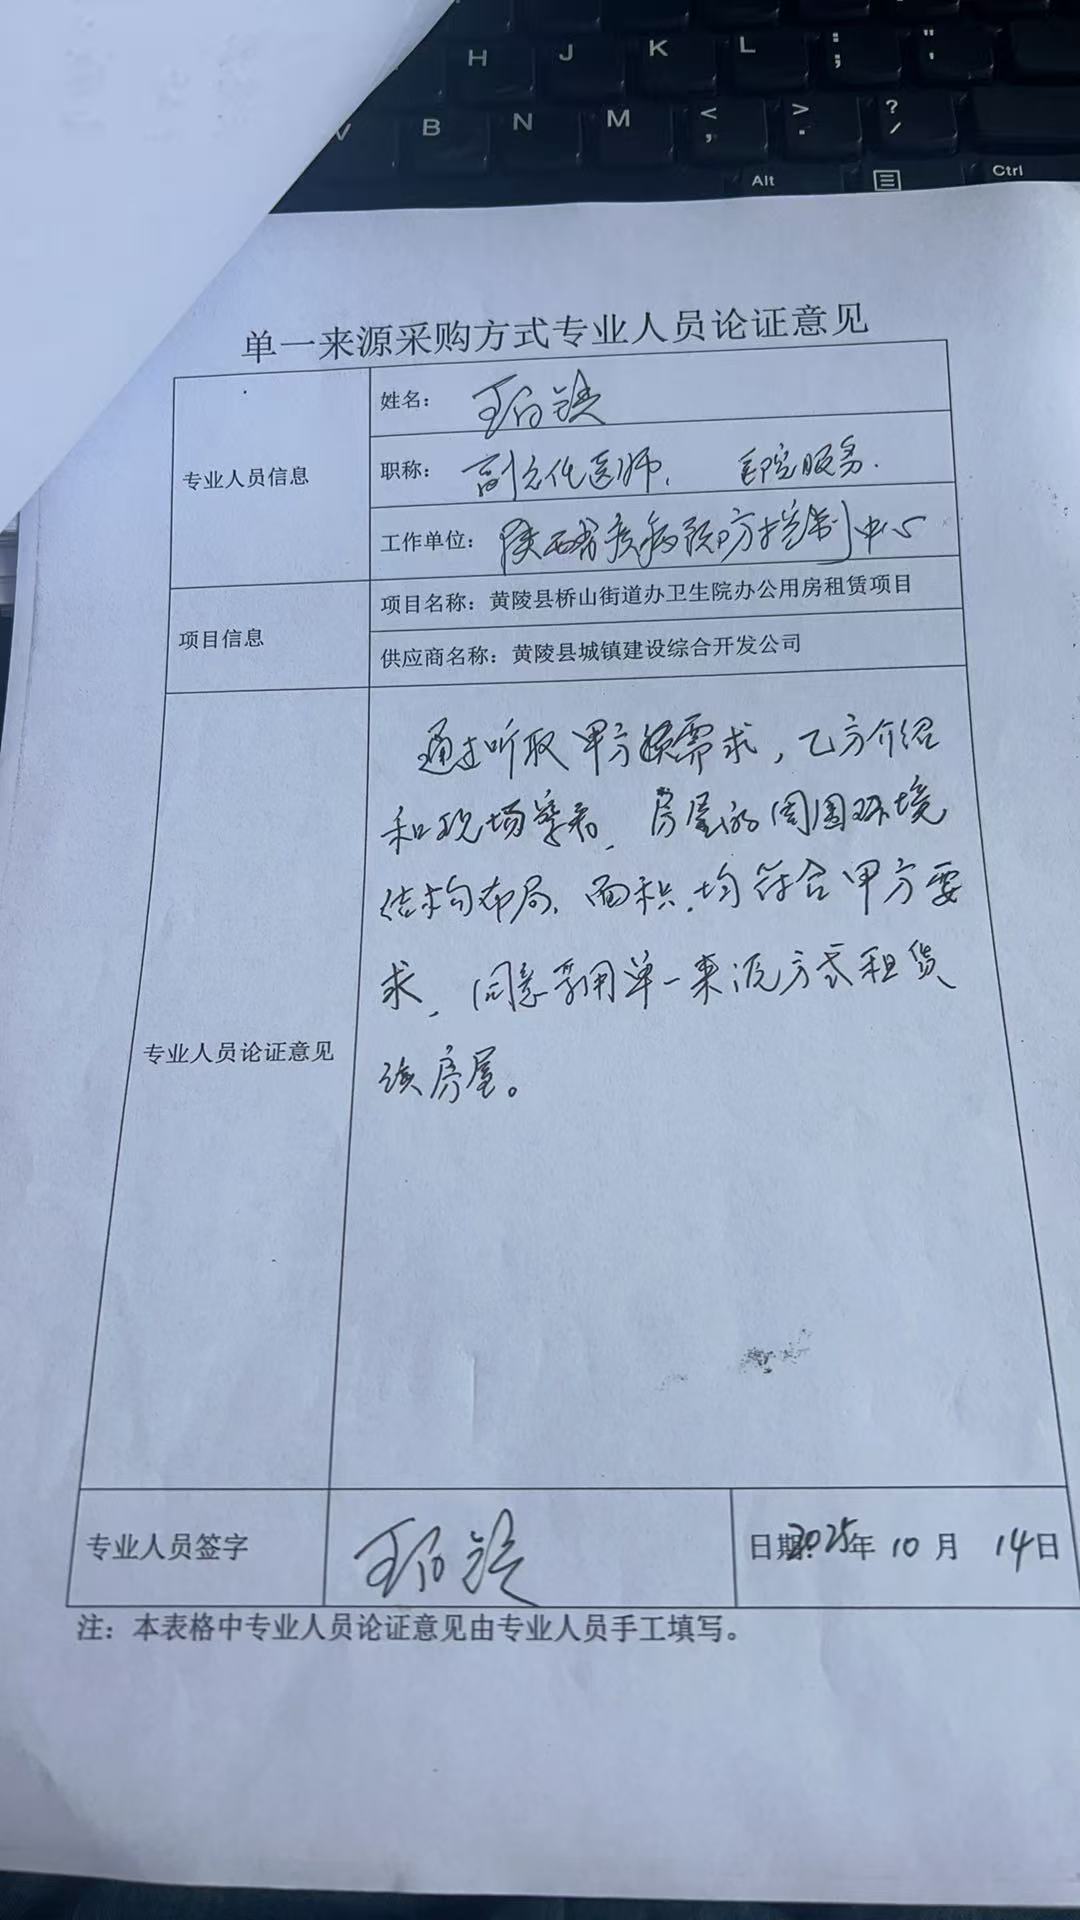 H J K L : ; " '
V B N M < , > . ? /
Alt Ctrl
单一来源采购方式专业人员论证意见
专业人员信息
姓名：
职称： 副主任医师、 医院服务.
工作单位： 陕西省疾病预防控制中心
项目信息
项目名称：黄陵县桥山街道办卫生院办公用房租赁项目
供应商名称：黄陵县城镇建设综合开发公司
专业人员论证意见
通过听取甲方需求，乙方介绍
和现场察看、房屋的周围环境
结构布局、面积、均符合甲方要
求、同意采用单一来源方式租赁
该房屋。
专业人员签字
日期：2025年 10 月 14日
注：本表格中专业人员论证意见由专业人员手工填写。